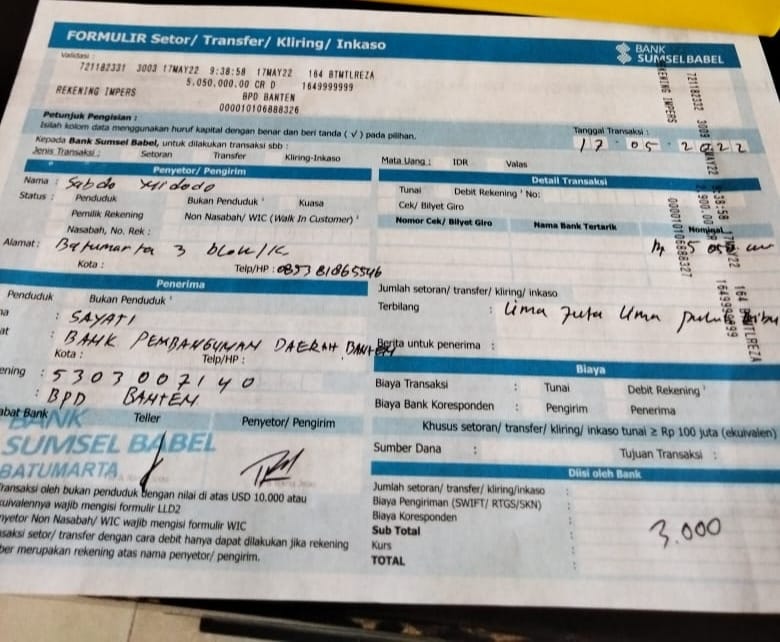 FORMULIR Setor/ Transfer/ Kliring/ Inkaso
BANK
SUMSELBABEL
Validasi :
721182331 3003 17MAY22 9:38:58 17MAY22 164 BTMTLREZA
5,050,000.00 CR D 1649999999
REKENING IMPERS BPD BANTEN
000010106888326
Petunjuk Pengisian :
Isilah kolom data menggunakan huruf kapital dengan benar dan beri tanda ( √ ) pada pilihan.
Kepada Bank Sumsel Babel, untuk dilakukan transaksi sbb :
Tanggal Transaksi :
17 05 2022
Jenis Transaksi : Setoran Transfer Kliring-Inkaso Mata Uang : IDR Valas
Penyetor/ Pengirim
Nama : Sabdo Widodo
Status : Penduduk Bukan Penduduk * Kuasa
Pemilik Rekening Non Nasabah/ WIC (Walk In Customer) *
Nasabah, No. Rek :
Alamat : Batumarta 3 blok/K
Kota : Telp/HP : 085381865546
Detail Transaksi
Tunai Debit Rekening * No:
Cek/ Bilyet Giro
Nomor Cek/ Bilyet Giro Nama Bank Tertarik Nominal
Jumlah setoran/ transfer/ kliring/ inkaso
Terbilang : Lima Juta Lima puluh Ribu
Berita untuk penerima :
Penerima
Penduduk Bukan Penduduk *
: SAYATI
: BANK PEMBANGUNAN DAERAH BANTEN
Kota : Telp/HP :
ening : 5303007140
: BPD BANTEN
abat Bank Teller Penyetor/ Pengirim
BANK
SUMSEL BABEL
BATUMARTA
Biaya
Biaya Transaksi : Tunai Debit Rekening *
Biaya Bank Koresponden : Pengirim Penerima
Khusus setoran/ transfer/ kliring/ inkaso tunai ≥ Rp 100 juta (ekuivalen)
Sumber Dana : Tujuan Transaksi :
Diisi oleh Bank
Jumlah setoran/ transfer/ kliring/inkaso :
Biaya Pengiriman (SWIFT/ RTGS/SKN) :
Biaya Koresponden :
Sub Total : 3.000
Kurs :
TOTAL :
ransaksi oleh bukan penduduk dengan nilai di atas USD 10.000 atau
kuivalennya wajib mengisi formulir LLD2
nyetor Non Nasabah/ WIC wajib mengisi formulir WIC
nsaksi setor/ transfer dengan cara debit hanya dapat dilakukan jika rekening
ber merupakan rekening atas nama penyetor/ pengirim.